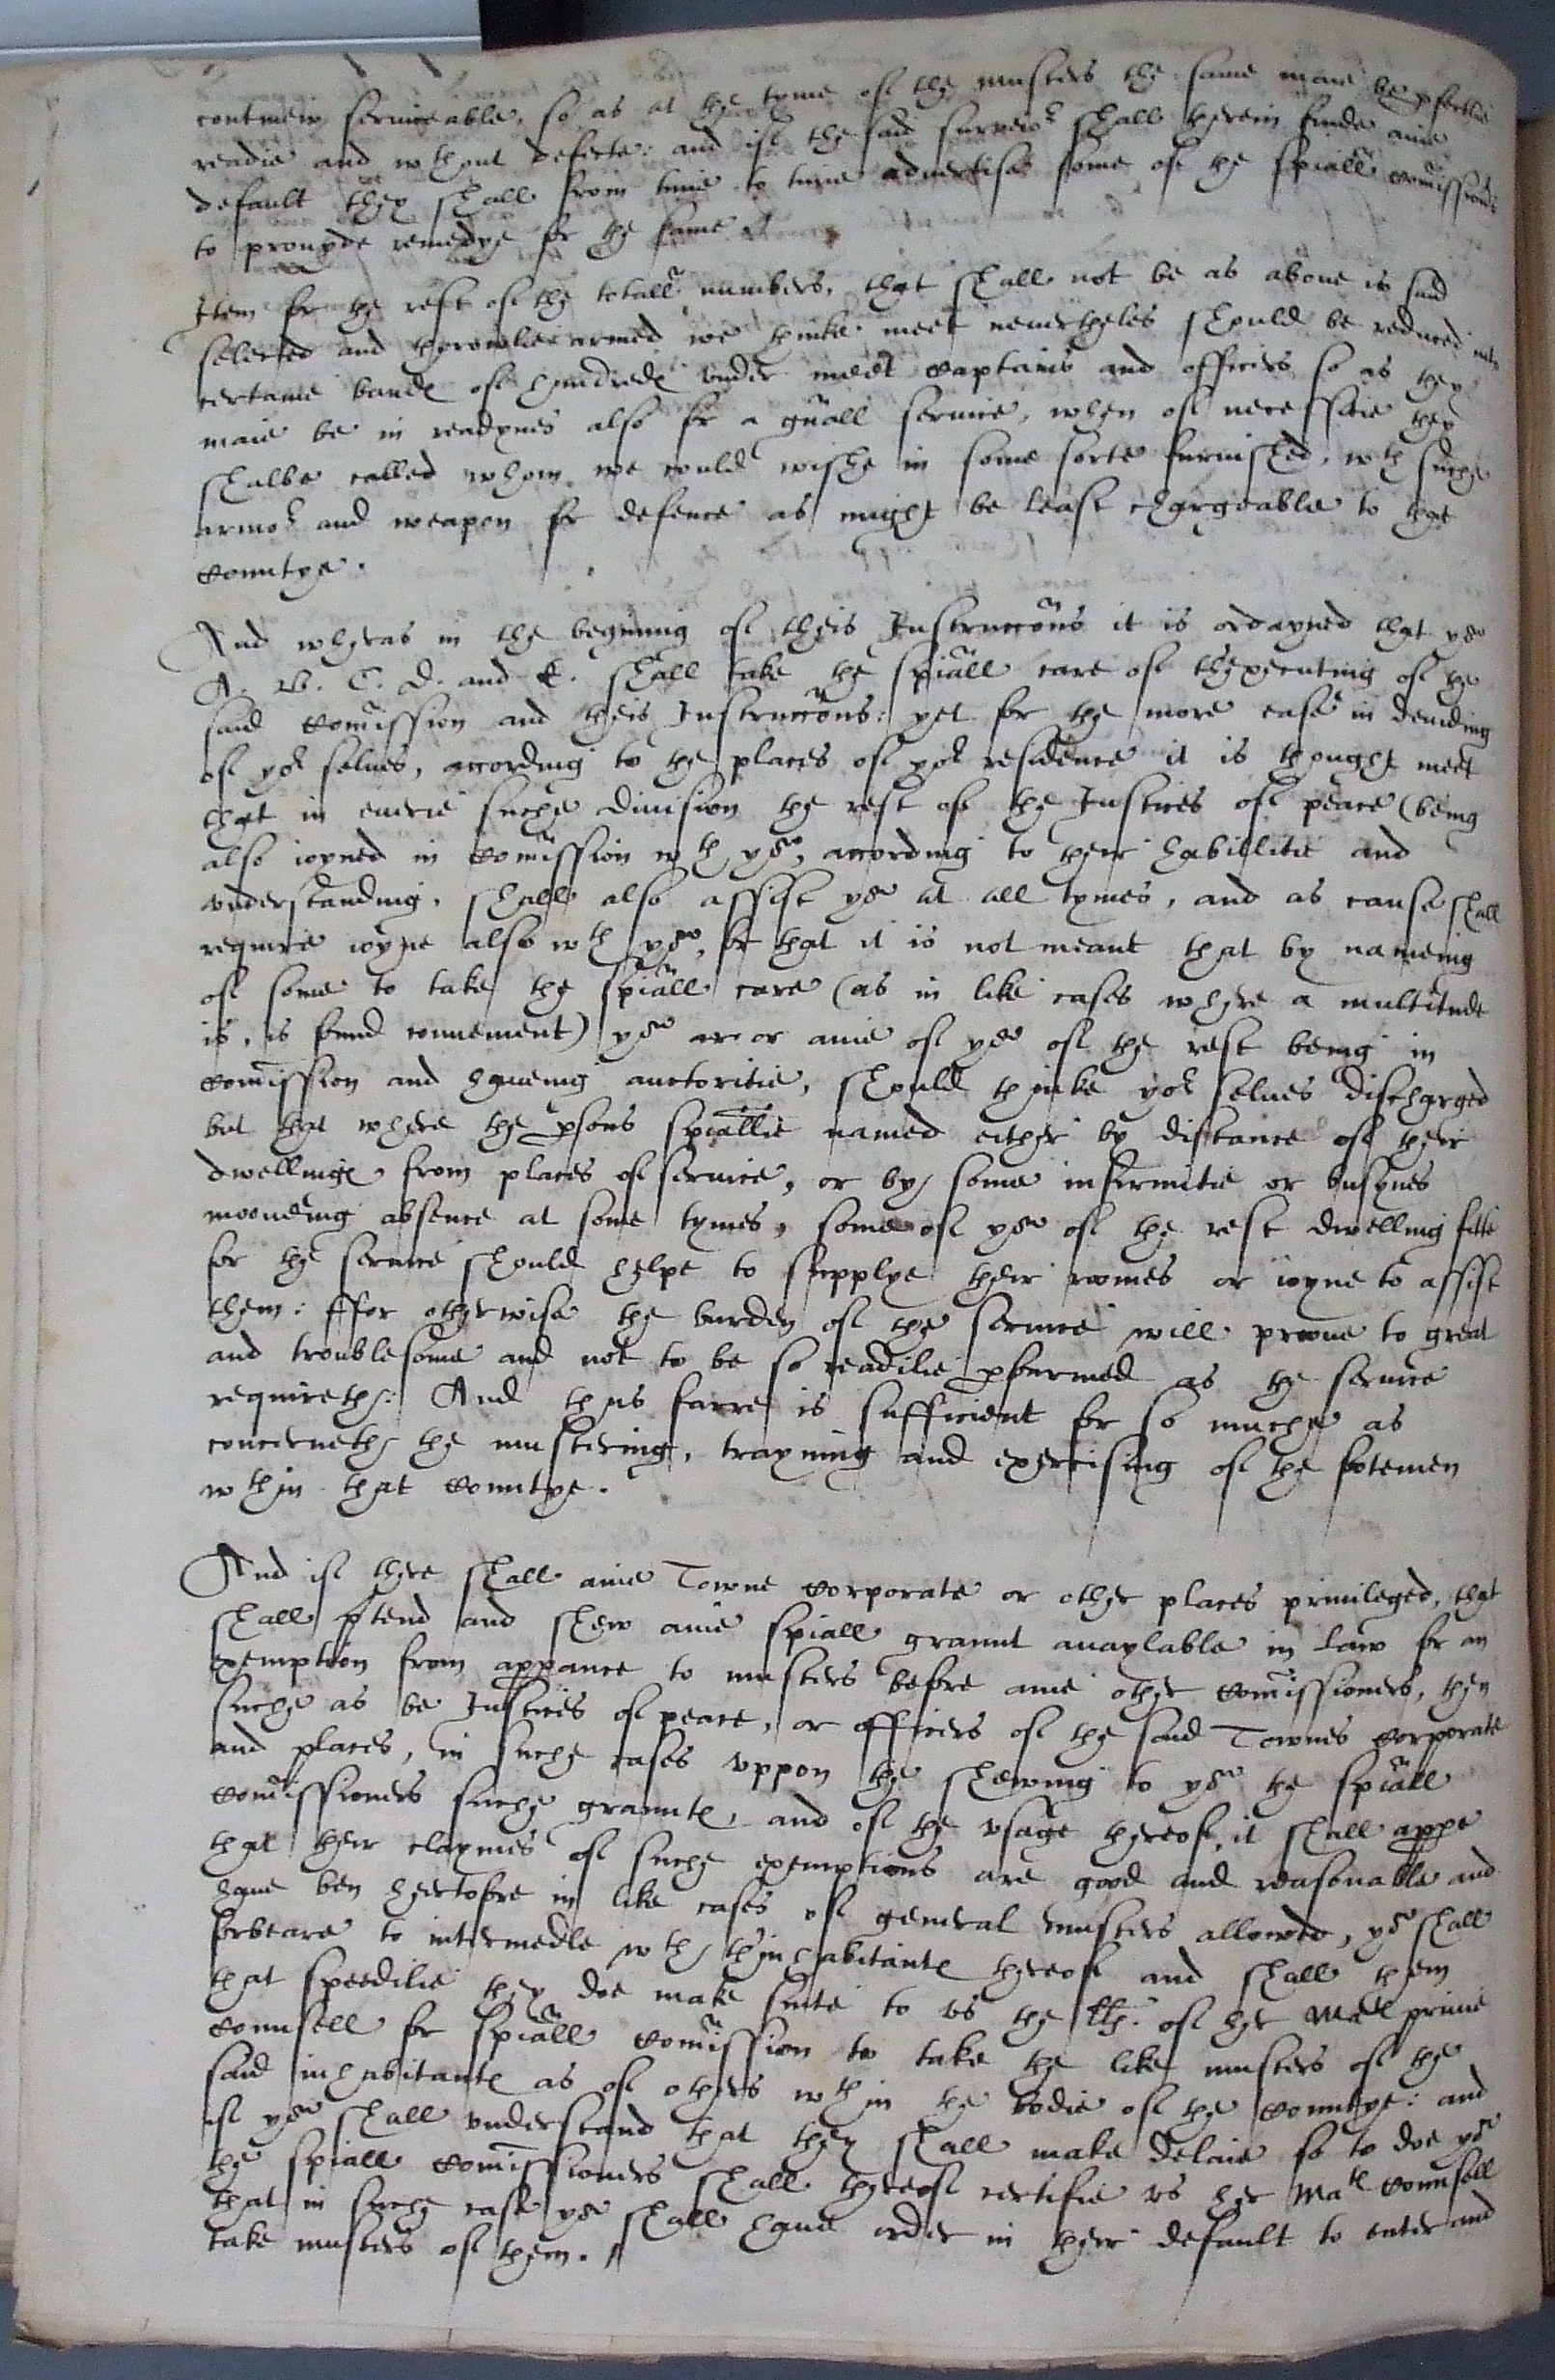 contineu serviceable, so as at the tyme of the musters the same maie be pfectlie
readie and wthout defecte: and if the said surveiors shall therein finde anie
default they shall from time to time advertise some of the spiall comissioners
to provyde remedye for the same
Item for the rest of the totall numbers, that shall not be as above is said
selected and throwlie armed we thinke meet nevertheles should be reduced into
certaine bandes of hundredes under meet captains and officers so as they
maie be in readynes also for a gnall service, when of necessitie they
shalbe called whom we could wishe in some sorte furnished, wth suche
armor and weapon for defence as might be least chargeable to that
countye.
And wheras in the begining of theis Instruccons it is ordayned that you
A. B. C. D. and E. shall take the spiall care of thexecuting of the
said comission and theis Instruccons: yet for the more ease in deviding
of yor selves, according to the places of yor residence it is thought meet
that in everie suche division the rest of the Justices of peace (being
also ioyned in comission wth you, according to their habillitie and
understanding, shall also assist you at all tymes, and as cause shall
require ioyne also wth you, for that it is not meant that by nameing
of some to take the spiall care (as in like cases where a multitude
is, is found convenient) you ar or anie of you of the rest being in
comission and haveing auctoritie, should thinke yor selves discharged
but that where the psons spiallie named either by distance of their
dwellinges from places of service, or by some infirmitie or busynes
mooveing absence at some tymes, some of you of the rest dwelling fitte
for the service should helpe to supplye their roomes or ioyne to assist
them: ffor otherwise the burden of the service will proove to great
and troublesome and not to be so readilie pformed as the service
requireth: And thus farre is sufficient for so muche as
concerneth the mustering, trayning and exercising of the footemen
wthin that countye.
And if there shall anie Towne corporate or other places priviledged, that
shall ptend and shew anie spiall graunt avaylable in law for an
exemption from appance to musters before anie other comissioners, then
suche as be Justices of peace, or officers of the said Townes corporate
and places, in suche cases uppon the shewing to you the spiall
comissioners suche grauntes, and of the usage thereof, it shall appe
that their claymes of suche exemptions are good and reasonable and
have ben heertofore in like cases of general musters allowed, you shall
forbeare to intermedle wth thinhabitantes thereof and shall them
that speedilie they doe make sute to us the LLs. of her Mates privie
counsell for spiall comission to take the like musters of the
said inhabitantes as of others wthin the bodie of the countye: and
if you shall understand that they shall make delaie so to doe you
the spiall comissioners shall thereof certifie us her Mates counsell
that in suche case you shall have order in their default to enter and
take musters of them.